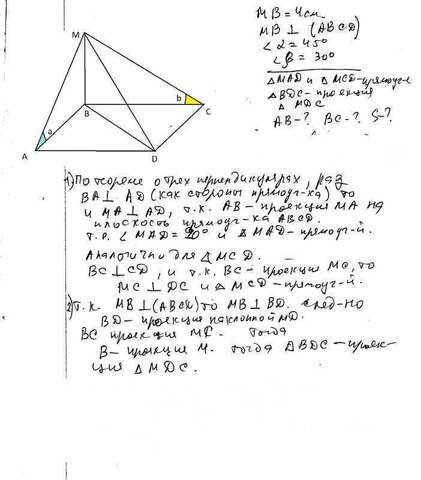 M
B
b
C
a
A
D
MB = 4 см
MB ⊥ (ABCD)
∠α = 45°
∠β = 30°
△MAD и △MCD - прямоуг-е
△BDC - проекция
△MDC
AB - ? BC - ? S - ?
1) По теореме о трех перпендикулярах, раз
BA ⊥ AD (как стороны прямоуг-ка) то
и MA ⊥ AD, т.к. AB - проекция MA на
плоскость прямоуг-ка ABCD.
т.е. ∠MAD = 90° и △MAD - прямоуг-й.
Аналогично для △MCD.
BC ⊥ CD, и т.к. BC - проекция MC, то
MC ⊥ DC и △MCD - прямоуг-й.
2) т.к. MB ⊥ (ABCD) то MB ⊥ BD. след-но
BD - проекция наклонной MD.
BC проекция MC. тогда
B - проекция M. тогда △BDC - проек-
ция △MDC.